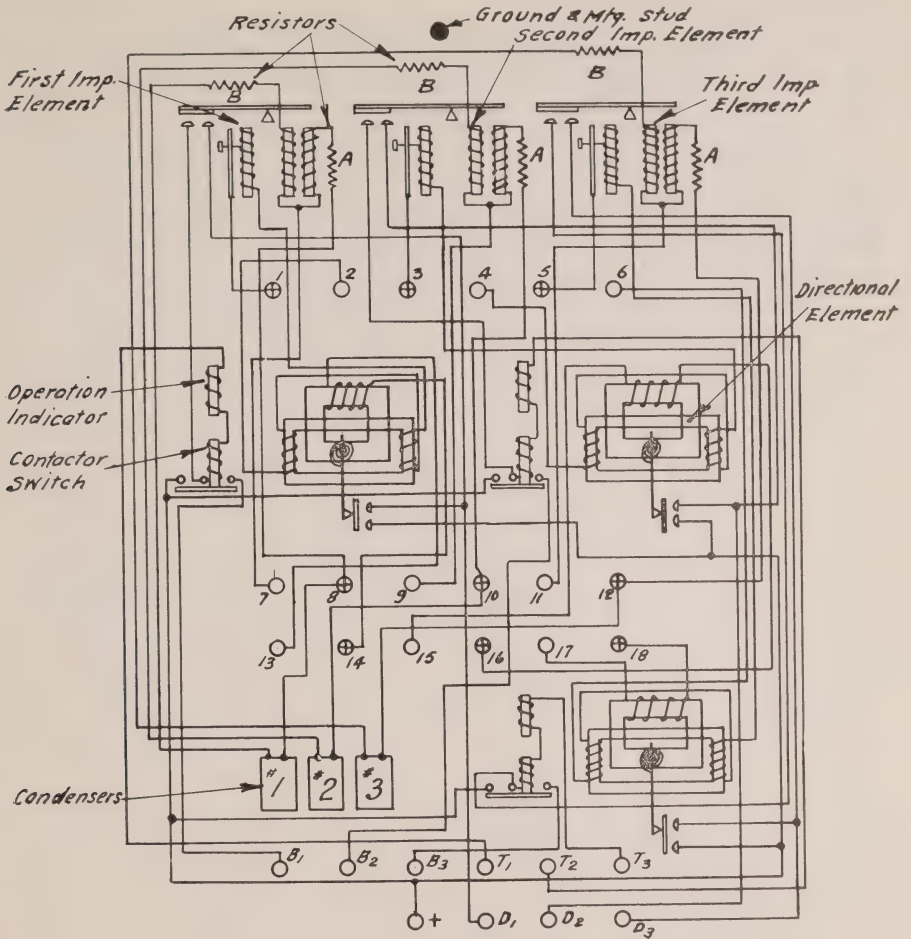 Ground & Mtg. Stud
Resistors
Second Imp. Element
First Imp.
Element
B
B
B
Third Imp
Element
A
A
A
1
2
3
4
5
6
Directional
Element
Operation
Indicator
Contactor
Switch
7
8
9
10
11
12
13
14
15
16
17
18
Condensers
#1
#2
#3
B1
B2
B3
T1
T2
T3
+
D1
D2
D3